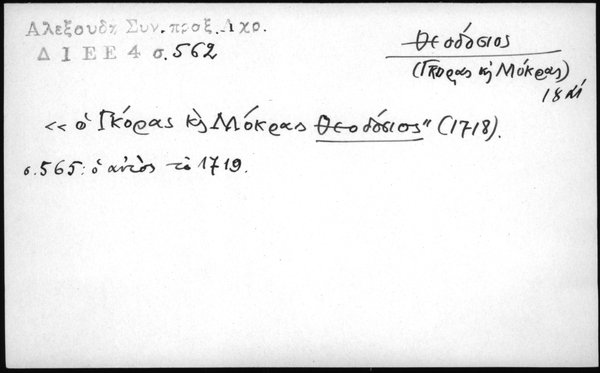 Αλεξουδη Συν. προξ. Αχρ.
ΔΙΕΕ 4 σ. 562
Θεοδόσιος
(Γκόρας κὴ Μόκρας)
18 αἰ
«ὁ Γκόρας κὴ Μόκρας Θεοδόσιος" (1718).
σ. 565: ὁ αὐτὸς τὸ 1719.